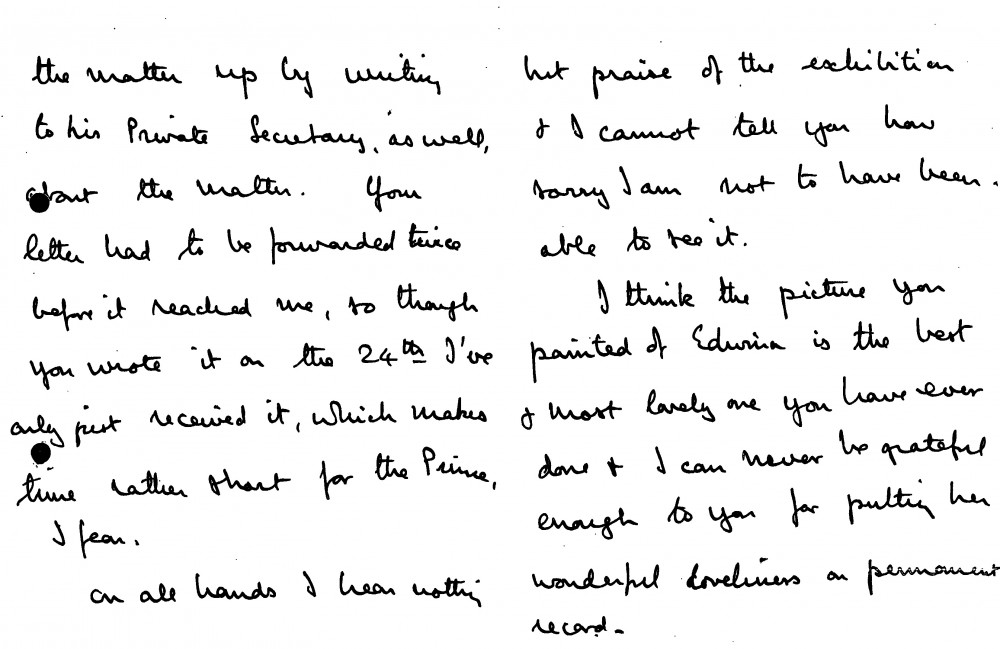 the matter up by writing
to his Private Secretary, as well,
about the matter. Your
letter had to be forwarded twice
before it reached me, so though
you wrote it on the 24th I've
only just received it, which makes
time rather short for the Prince,
I fear.
On all hands I hear nothing
but praise of the exhibition
& I cannot tell you how
sorry I am not to have been
able to see it.
I think the picture you
painted of Edwina is the best
& most lovely one you have ever
done & I can never be grateful
enough to you for putting her
wonderful loveliness on permanent
record.